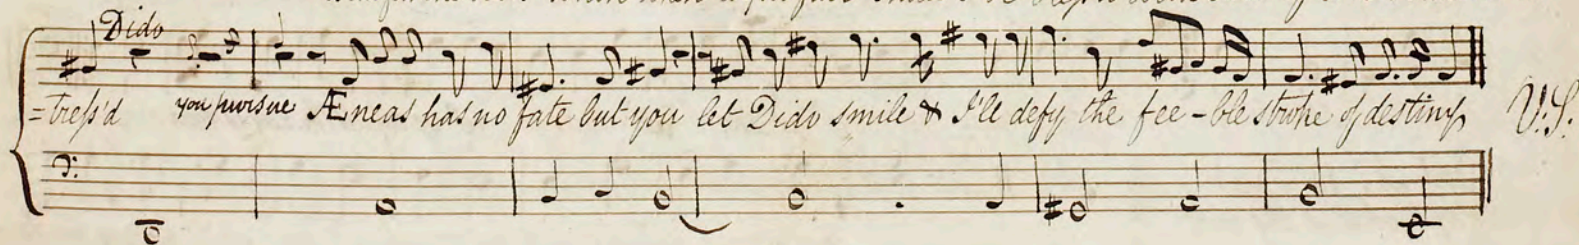 Dido
=tress'd you pursue Æneas has no fate but you let Dido smile & I'll defy the fee-ble stroke of destiny V:S.